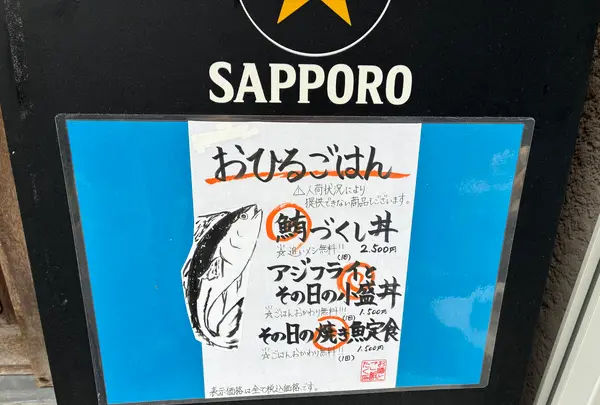 SAPPORO
おひるごはん
⚠入荷状況により
提供できない商品もございます。
鮪づくし丼
☆追いメシ無料!!!(1回) 2.500円
アジフライと
その日の小盛丼
☆ごはんおかわり無料!!!(1回) 1.500円
その日の焼き魚定食
☆ごはんおかわり無料!!!(1回) 1.500円
表示価格は全て税込価格です。